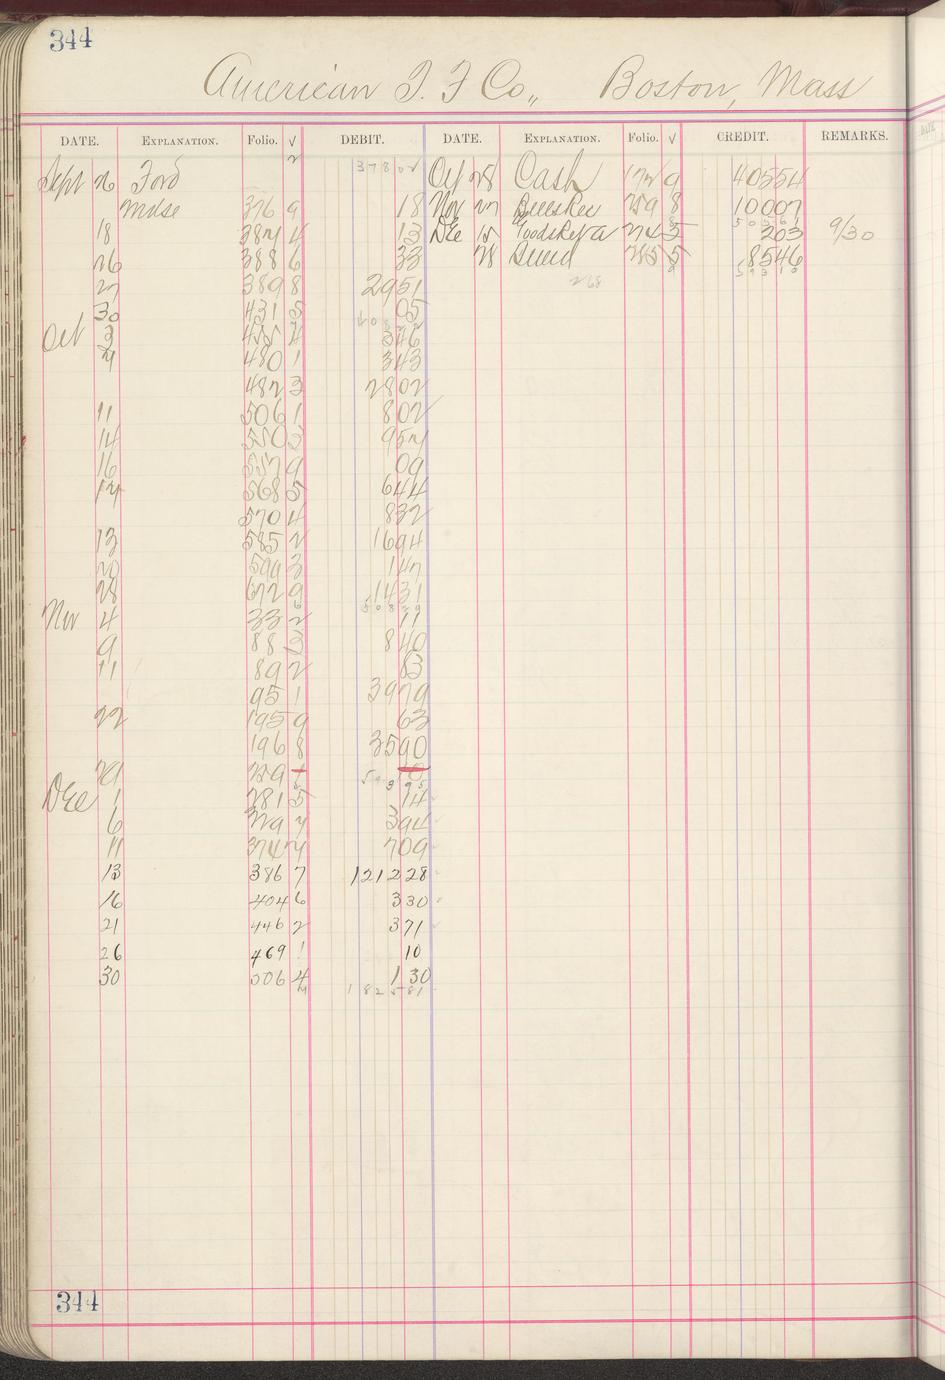 344
American T. F Co., Boston, Mass
DATE. EXPLANATION. Folio. √ DEBIT. DATE. EXPLANATION. Folio. √ CREDIT. REMARKS.
Sept 26 Ford 2 378 02 Oct 28 Cash 172 9 405 54
Mdse 376 9 18 Nov 27 259 8 100 07
18 387 4 13 Dec 15 274 3 2 03 9/30
26 388 6 33 28 285 5 85 46
27 389 8 29 51 268
30 431 5 05
Oct 3 455 4 3 46
7 480 1 3 43
482 3 28 02
11 506 1 8 02
14 550 9 57
16 557 9 09
17 568 5 6 44
570 4 8 32
13 585 2 16 94
20 599 3 1 47
28 672 9 14 31
508 29
Nov 4 33 2 11
9 88 3 8 40
11 89 2 63
95 1 39 79
22 195 9 63
196 8 35 90
29 259
Dec 1 281 5 14
6 329 7 3 94
11 374 7 7 09
13 386 7 1212 28
16 404 6 3 30
21 446 2 3 71
26 469 1 10
30 506 4 1 30
1825 81
344